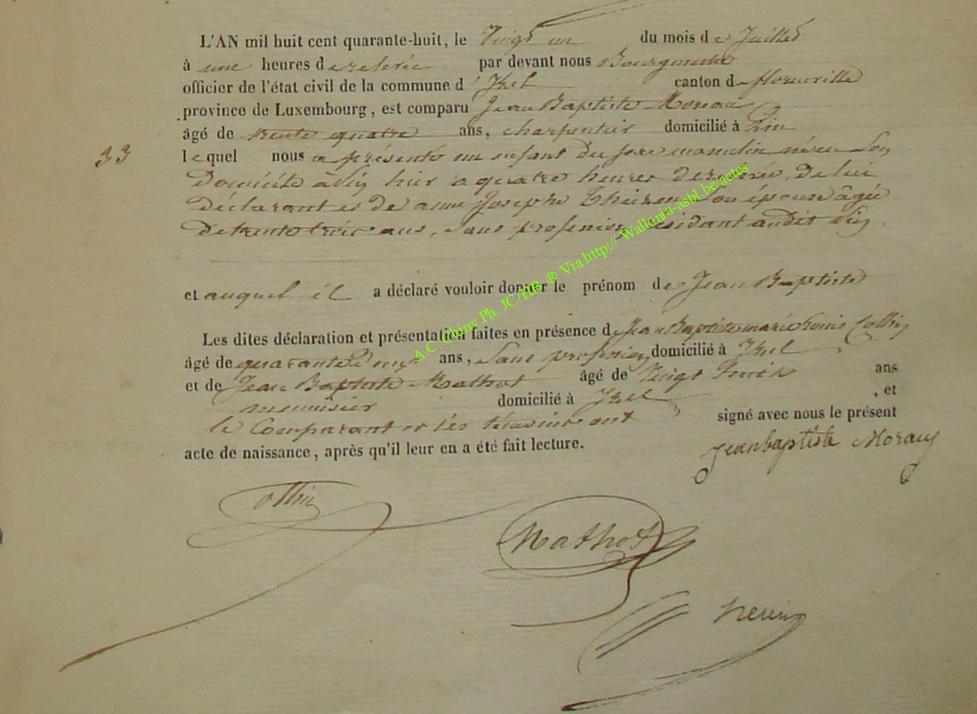 L'AN mil huit cent quarante-huit, le Vingt un du mois de Juillet
à une heures de relevée par devant nous Bourgmestre
officier de l'état civil de la commune d'Izel canton de Florenville
province de Luxembourg, est comparu Jean Baptiste Moreau
âgé de trente quatre ans, charpentier domicilié à Pin
33 lequel nous a présenté un enfant du sexe masculin né en Son
Domicile à Pin hier a quatre heures de relevée, de lui
déclarant et de anne Josephe Son épouse âgée
de trente trois ans, Sans profession, résidant audit Pin
et auquel il a déclaré vouloir donner le prénom de Jean Baptiste
Les dites déclaration et présentation faites en présence de Jean Baptiste marie Louis Collin
âgé de quarante ans, Sans profession domicilié à Izel
et de Jean Baptiste Mathot âgé de Vingt huit ans
menuisier domicilié à Izel, et
le Comparant et les témoins ont signé avec nous le présent
acte de naissance, après qu'il leur en a été fait lecture.
Jean baptiste Moraux
Collin
Mathot
A.C. Chiny Ph. JC/HB. ® Via http://Wallonia-asbl.be/actes